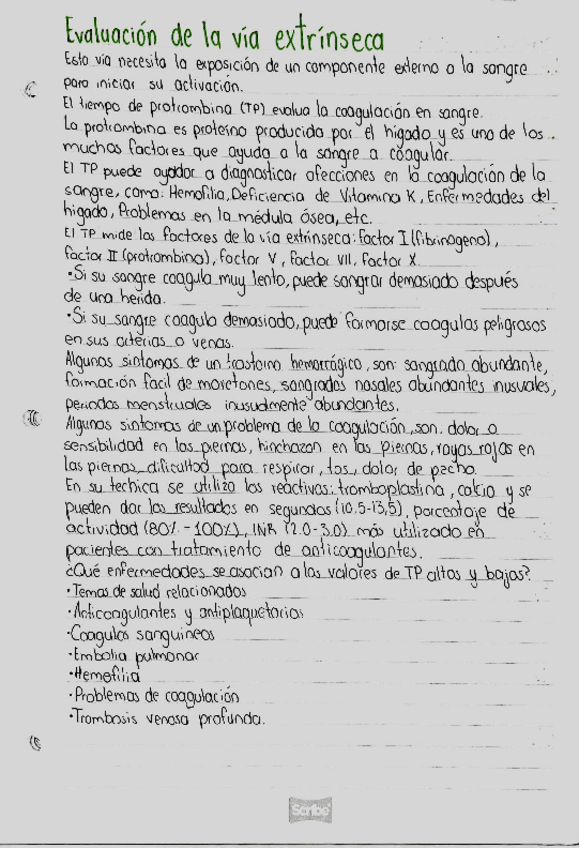 Evaluación de la vía extrínseca
Esta vía necesita la exposición de un componente externo a la sangre
para iniciar su activación.
El tiempo de protrombina (TP) evalua la coagulación en sangre.
La protrombina es proteína producida por el hígado y es uno de los
muchos factores que ayuda a la sangre a coagular.
El TP puede ayudar a diagnosticar afecciones en la coagulación de la
sangre, como: Hemofilia, Deficiencia de Vitamina K, Enfermedades del
hígado, Problemas en la médula ósea, etc.
El TP mide los factores de la vía extrínseca: Factor I (fibrinógeno),
factor II (protrombina), factor V, factor VII, factor X.
•Si su sangre coagula muy lento, puede sangrar demasiado después
de una herida.
•Si su sangre coagula demasiado, puede formarse coagulos peligrosos
en sus arterias o venas.
Algunos síntomas de un trastorno hemorrágico, son: sangrado abundante,
formación facil de moretones, sangrados nasales abundantes inusuales,
periodos menstruales inusualmente abundantes.
Algunos síntomas de un problema de la coagulación, son: dolor o
sensibilidad en las piernas, hinchazon en las piernas, rayas rojas en
las piernas, dificultad para respirar, tos, dolor de pecho.
En su techica se utiliza los reactivos: tromboplastina, calcio y se
pueden dar los resultados en segundos (10.5-13.5), porcentaje de
actividad (80% - 100%), INR (2.0-3.0) más utilizado en
pacientes con tratamiento de anticoagulantes.
¿Qué enfermedades se asocian a los valores de TP altos y bajos?
•Temas de salud relacionados
•Anticoagulantes y antiplaquetarios
•Coagulos sanguineos
•Embolia pulmonar
•Hemofilia
•Problemas de coagulación
•Trombosis venosa profunda.
Scribe